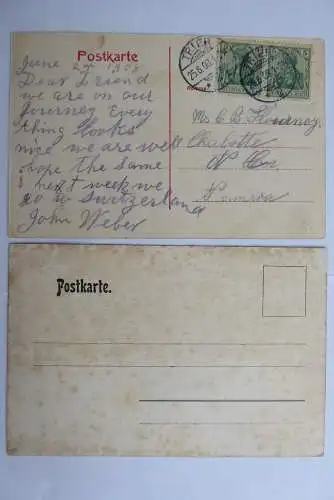 Postkarte
June 27 1908
Dear Friend
we are on our
Journey Every
thing Looks
nice we are well
hope the same
next week we
go to Switzerland
John Weber
Mr C B
Charlotte
N
Postkarte.